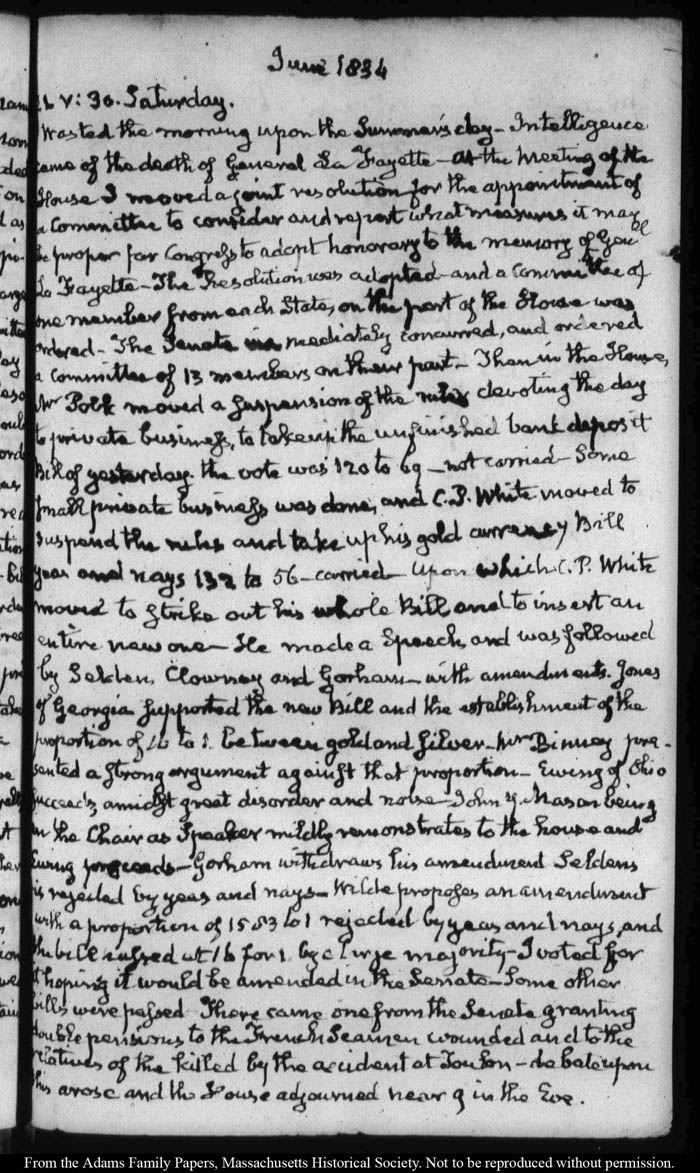 June 1834
V: 30. Saturday.
Wasted the morning upon the Summer's day – Intelligence
came of the death of General La Fayette – At the Meeting of the
House I moved a joint resolution for the appointment of
a Committee to consider and report what measures it may
be proper for Congress to adopt honorary to the memory of Genl
La Fayette – The Resolution was adopted – and a Committee of
one member from each State, on the part of the House was
ordered – The Senate immediately concurred, and ordered
a Committee of 13 members on their part – Then in the House,
Mr Polk moved a suspension of the rules devoting the day
to private business, to take up the unfinished bank deposit
Bill of yesterday. the vote was 120 to 69 – not carried – Some
small private business was done, and C. P. White moved to
suspend the rules and take up his gold currency Bill
yeas and nays 132 to 56 – carried – Upon which C. P. White
moved to strike out his whole Bill and to insert an
entire new one – He made a Speech, and was followed
by Selden, Clowney and Gorham – with amendments. Jones
of Georgia supported the new Bill and the establishment of the
proportion of 16 to 1. between gold and silver – Mr Binney pre-
sented a strong argument against that proportion – Ewing of Ohio
succeeds, amidst great disorder and noise – John Y. Mason being
in the Chair as Speaker mildly remonstrates to the house and
Ewing proceeds – Gorham withdraws his amendment Seldens
is rejected by yeas and nays – Wilde proposes an amendment
with a proportion of 15.83 to 1 rejected by yeas and nays, and
the bill passed at 16 for 1. by a large majority – I voted for
it hoping it would be amended in the Senate – Some other
bills were passed There came one from the Senate granting
double pensions to the French Seamen wounded and to the
relatives of the killed by the accident at Toulon – debate upon
this arose and the House adjourned near 9 in the Eve.
From the Adams Family Papers, Massachusetts Historical Society. Not to be reproduced without permission.